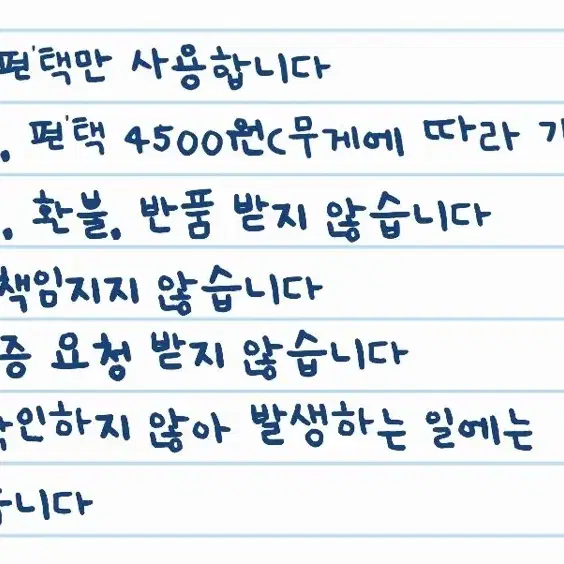 편택만 사용합니다
. 편택 4500원(무게에 따라
. 환불. 반품 받지 않습니다
책임지지 않습니다
증 요청 받지 않습니다
않아 발생하는 일에는